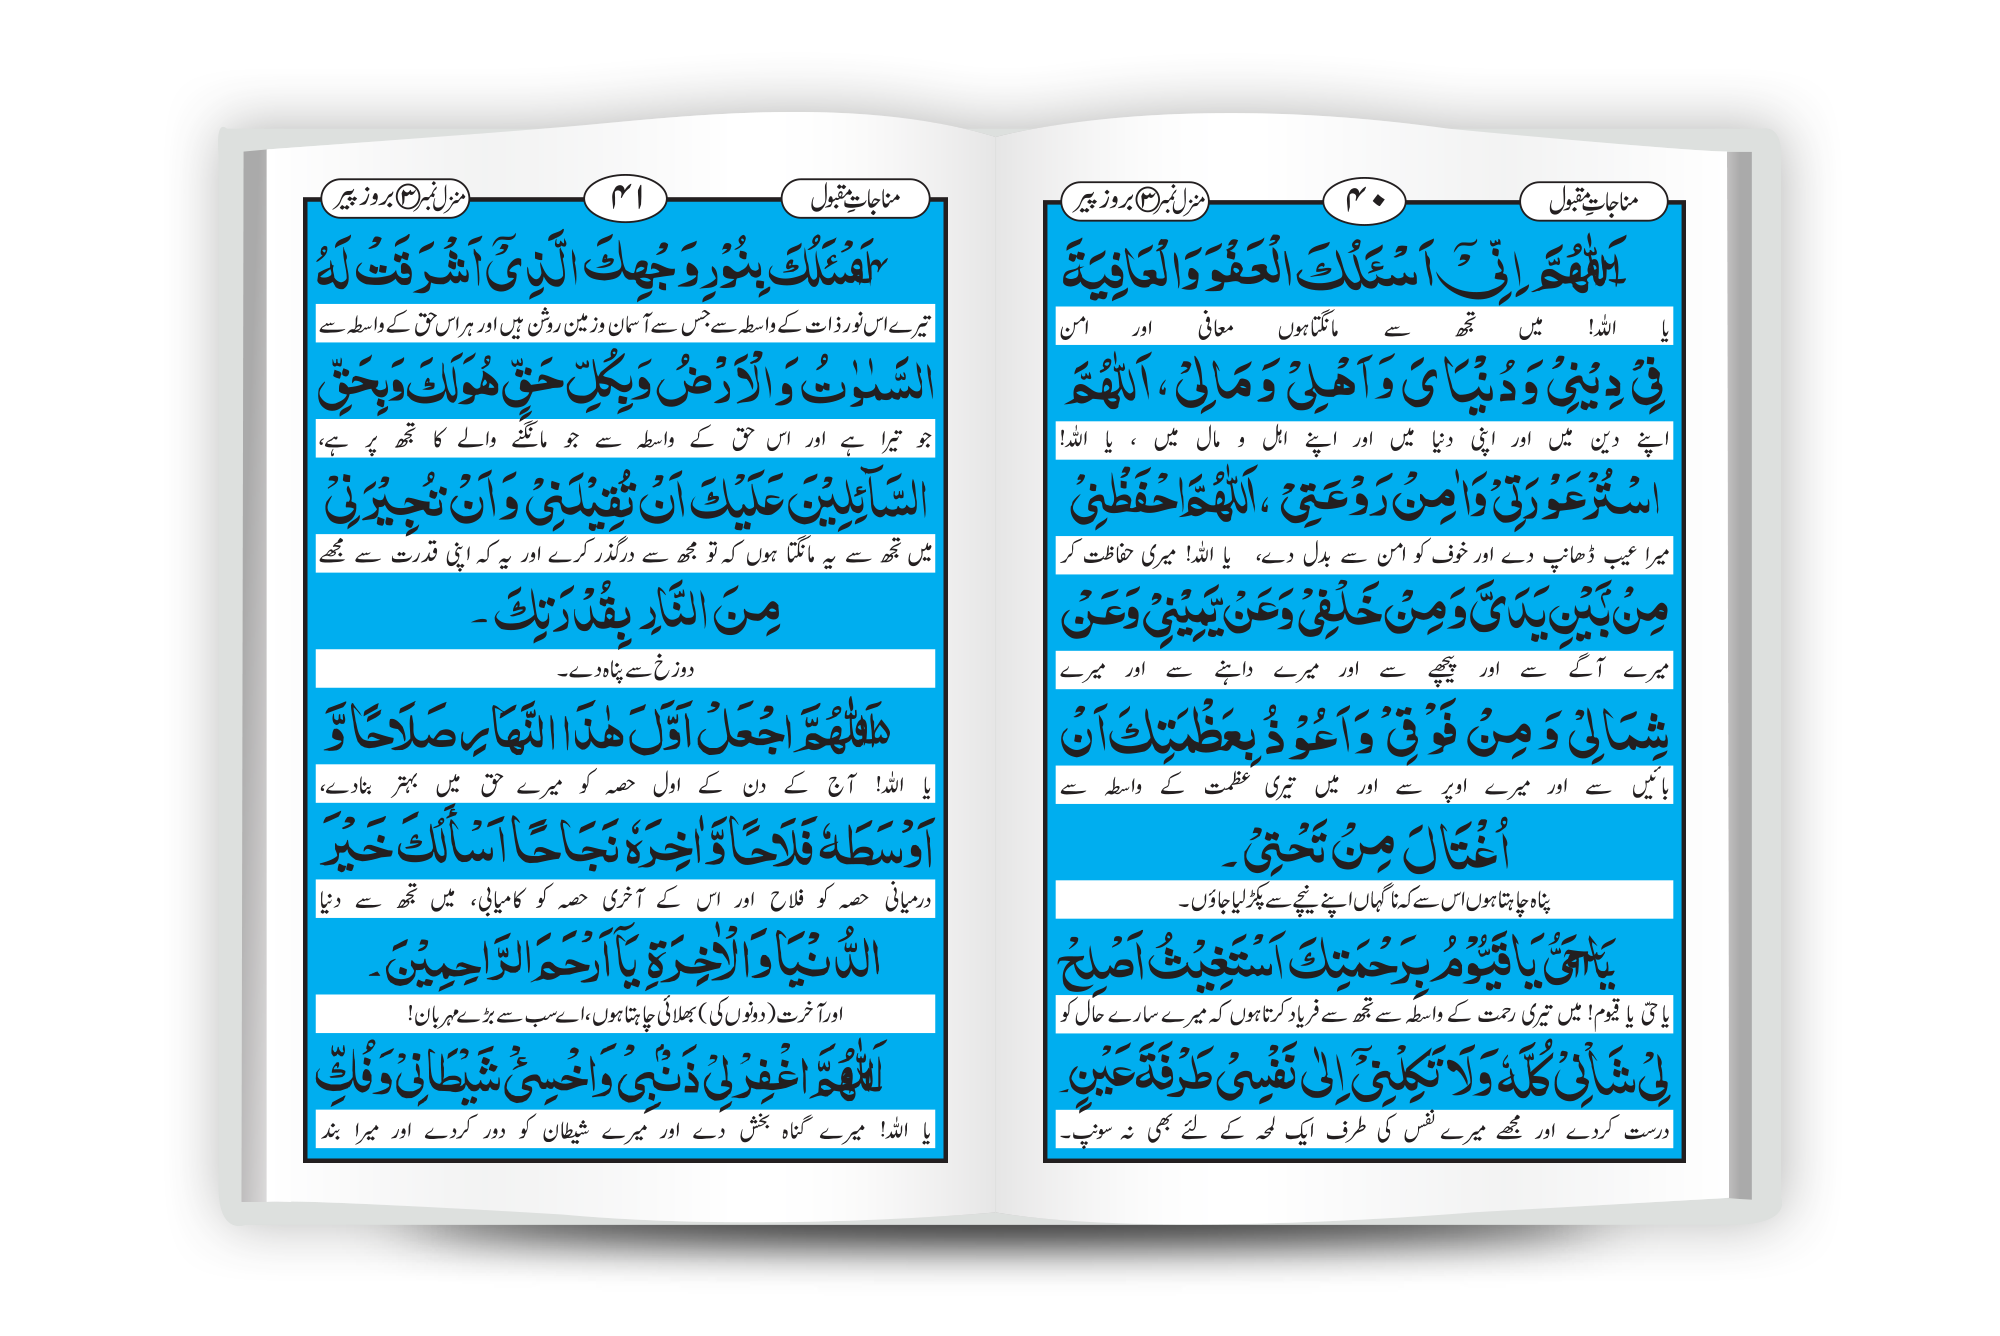 مناجاتِ مقبول
۴۰
منزل نمبر ۳ بروز پیر
اَللّٰهُمَّ اِنِّیْۤ اَسْئَلُكَ الْعَفْوَ وَالْعَافِيَةَ
یا اللہ! میں تجھ سے مانگتاہوں معافی اور امن
فِیْ دِيْنِیْ وَ دُنْيَایَ وَ اَهْلِیْ وَ مَالِیْ ، اَللّٰهُمَّ
اپنے دین میں اور اپنی دنیا میں اور اپنے اہل و مال میں ، یا اللہ!
اسْتُرْ عَوْرَتِیْ وَاٰمِنْ رَوْعَتِیْ ، اَللّٰهُمَّ احْفَظْنِیْ
میرا عیب ڈھانپ دے اور خوف کو امن سے بدل دے، یا اللہ! میری حفاظت کر
مِنْۢ بَيْنِ يَدَیَّ وَمِنْ خَلْفِیْ وَعَنْ يَّمِيْنِیْ وَعَنْ
میرے آگے سے اور پیچھے سے اور میرے داہنے سے اور میرے
شِمَالِیْ وَ مِنْ فَوْقِیْ وَاَعُوْذُ بِعَظْمَتِكَ اَنْ
بائیں سے اور میرے اوپر سے اور میں تیری عظمت کے واسطہ سے
اُغْتَالَ مِنْ تَحْتِیْ ۔
پناہ چاہتاہوں اس سے کہ ناگہاں اپنے نیچے سے پکڑ لیا جاؤں۔
يَا حَیُّ يَا قَيُّوْمُ بِرَحْمَتِكَ اَسْتَغِيْثُ اَصْلِحْ
یا حیّ یا قیوم! میں تیری رحمت کے واسطہ سے تجھ سے فریاد کرتاہوں کہ میرے سارے حال کو
لِیْ شَاْنِیْ كُلَّهٗ وَلَا تَكِلْنِیْۤ اِلٰی نَفْسِیْ طَرْفَةَ عَيْنٍ۔
درست کردے اور مجھے میرے نفس کی طرف ایک لمحہ کے لئے بھی نہ سونپ۔
مناجاتِ مقبول
۴۱
منزل نمبر ۳ بروز پیر
اَسْئَلُكَ بِنُوْرِ وَجْهِكَ الَّذِیْۤ اَشْرَقَتْ لَهُ
تیرے اس نور ذات کے واسطہ سے جس سے آسمان و زمین روشن ہیں اور ہر اس حق کے واسطہ سے
السَّمٰوٰتُ وَ الْاَرْضُ وَبِكُلِّ حَقٍّ هُوَ لَكَ وَبِحَقِّ
جو تیرا ہے اور اس حق کے واسطہ سے جو مانگنے والے کا تجھ پر ہے،
السَّآئِلِيْنَ عَلَيْكَ اَنْ تُقِيْلَنِیْ وَ اَنْ تُجِيْرَنِیْ
میں تجھ سے یہ مانگتا ہوں کہ تو مجھ سے درگذر کرے اور یہ کہ اپنی قدرت سے مجھے
مِنَ النَّارِ بِقُدْرَتِكَ ۔
دوزخ سے پناہ دے۔
اَللّٰهُمَّ اجْعَلْ اَوَّلَ هٰذَا النَّهَارِ صَلَاحًا وَّ
یا اللہ! آج کے دن کے اول حصہ کو میرے حق میں بہتر بنادے،
اَوْسَطَهٗ فَلَاحًا وَّ اٰخِرَهٗ نَجَاحًا اَسْأَلُكَ خَيْرَ
درمیانی حصہ کو فلاح اور اس کے آخری حصہ کو کامیابی، میں تجھ سے دنیا
الدُّنْيَا وَالْاٰخِرَةِ يَآ اَرْحَمَ الرَّاحِمِيْنَ ۔
اور آخرت (دونوں کی) بھلائی چاہتاہوں، اے سب سے بڑے مہربان!
اَللّٰهُمَّ اغْفِرْ لِیْ ذَنْۢبِیْ وَاخْسِئْ شَيْطَانِیْ وَفُكَّ
یا اللہ! میرے گناہ بخش دے اور میرے شیطان کو دور کردے اور میرا بند